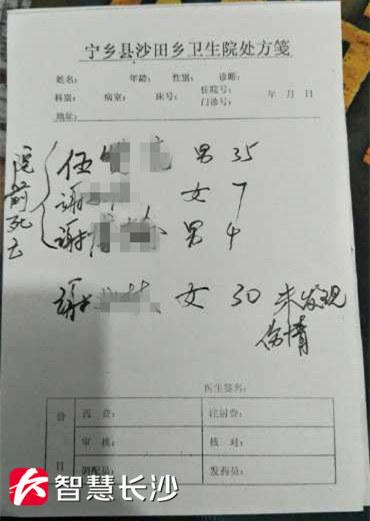 宁乡县沙田乡卫生院处方笺
姓名： 年龄： 性别： 诊断：
科别： 病室： 床号： 住院号： 门诊号： 年 月 日
地址：
院前死亡
伍 男 35
谢 女 7
谢 男 4
谢 女 30 未发现
伤情
医生签名：
药费： 注射费：
审核： 核对：
调配员： 发药员：
智慧长沙